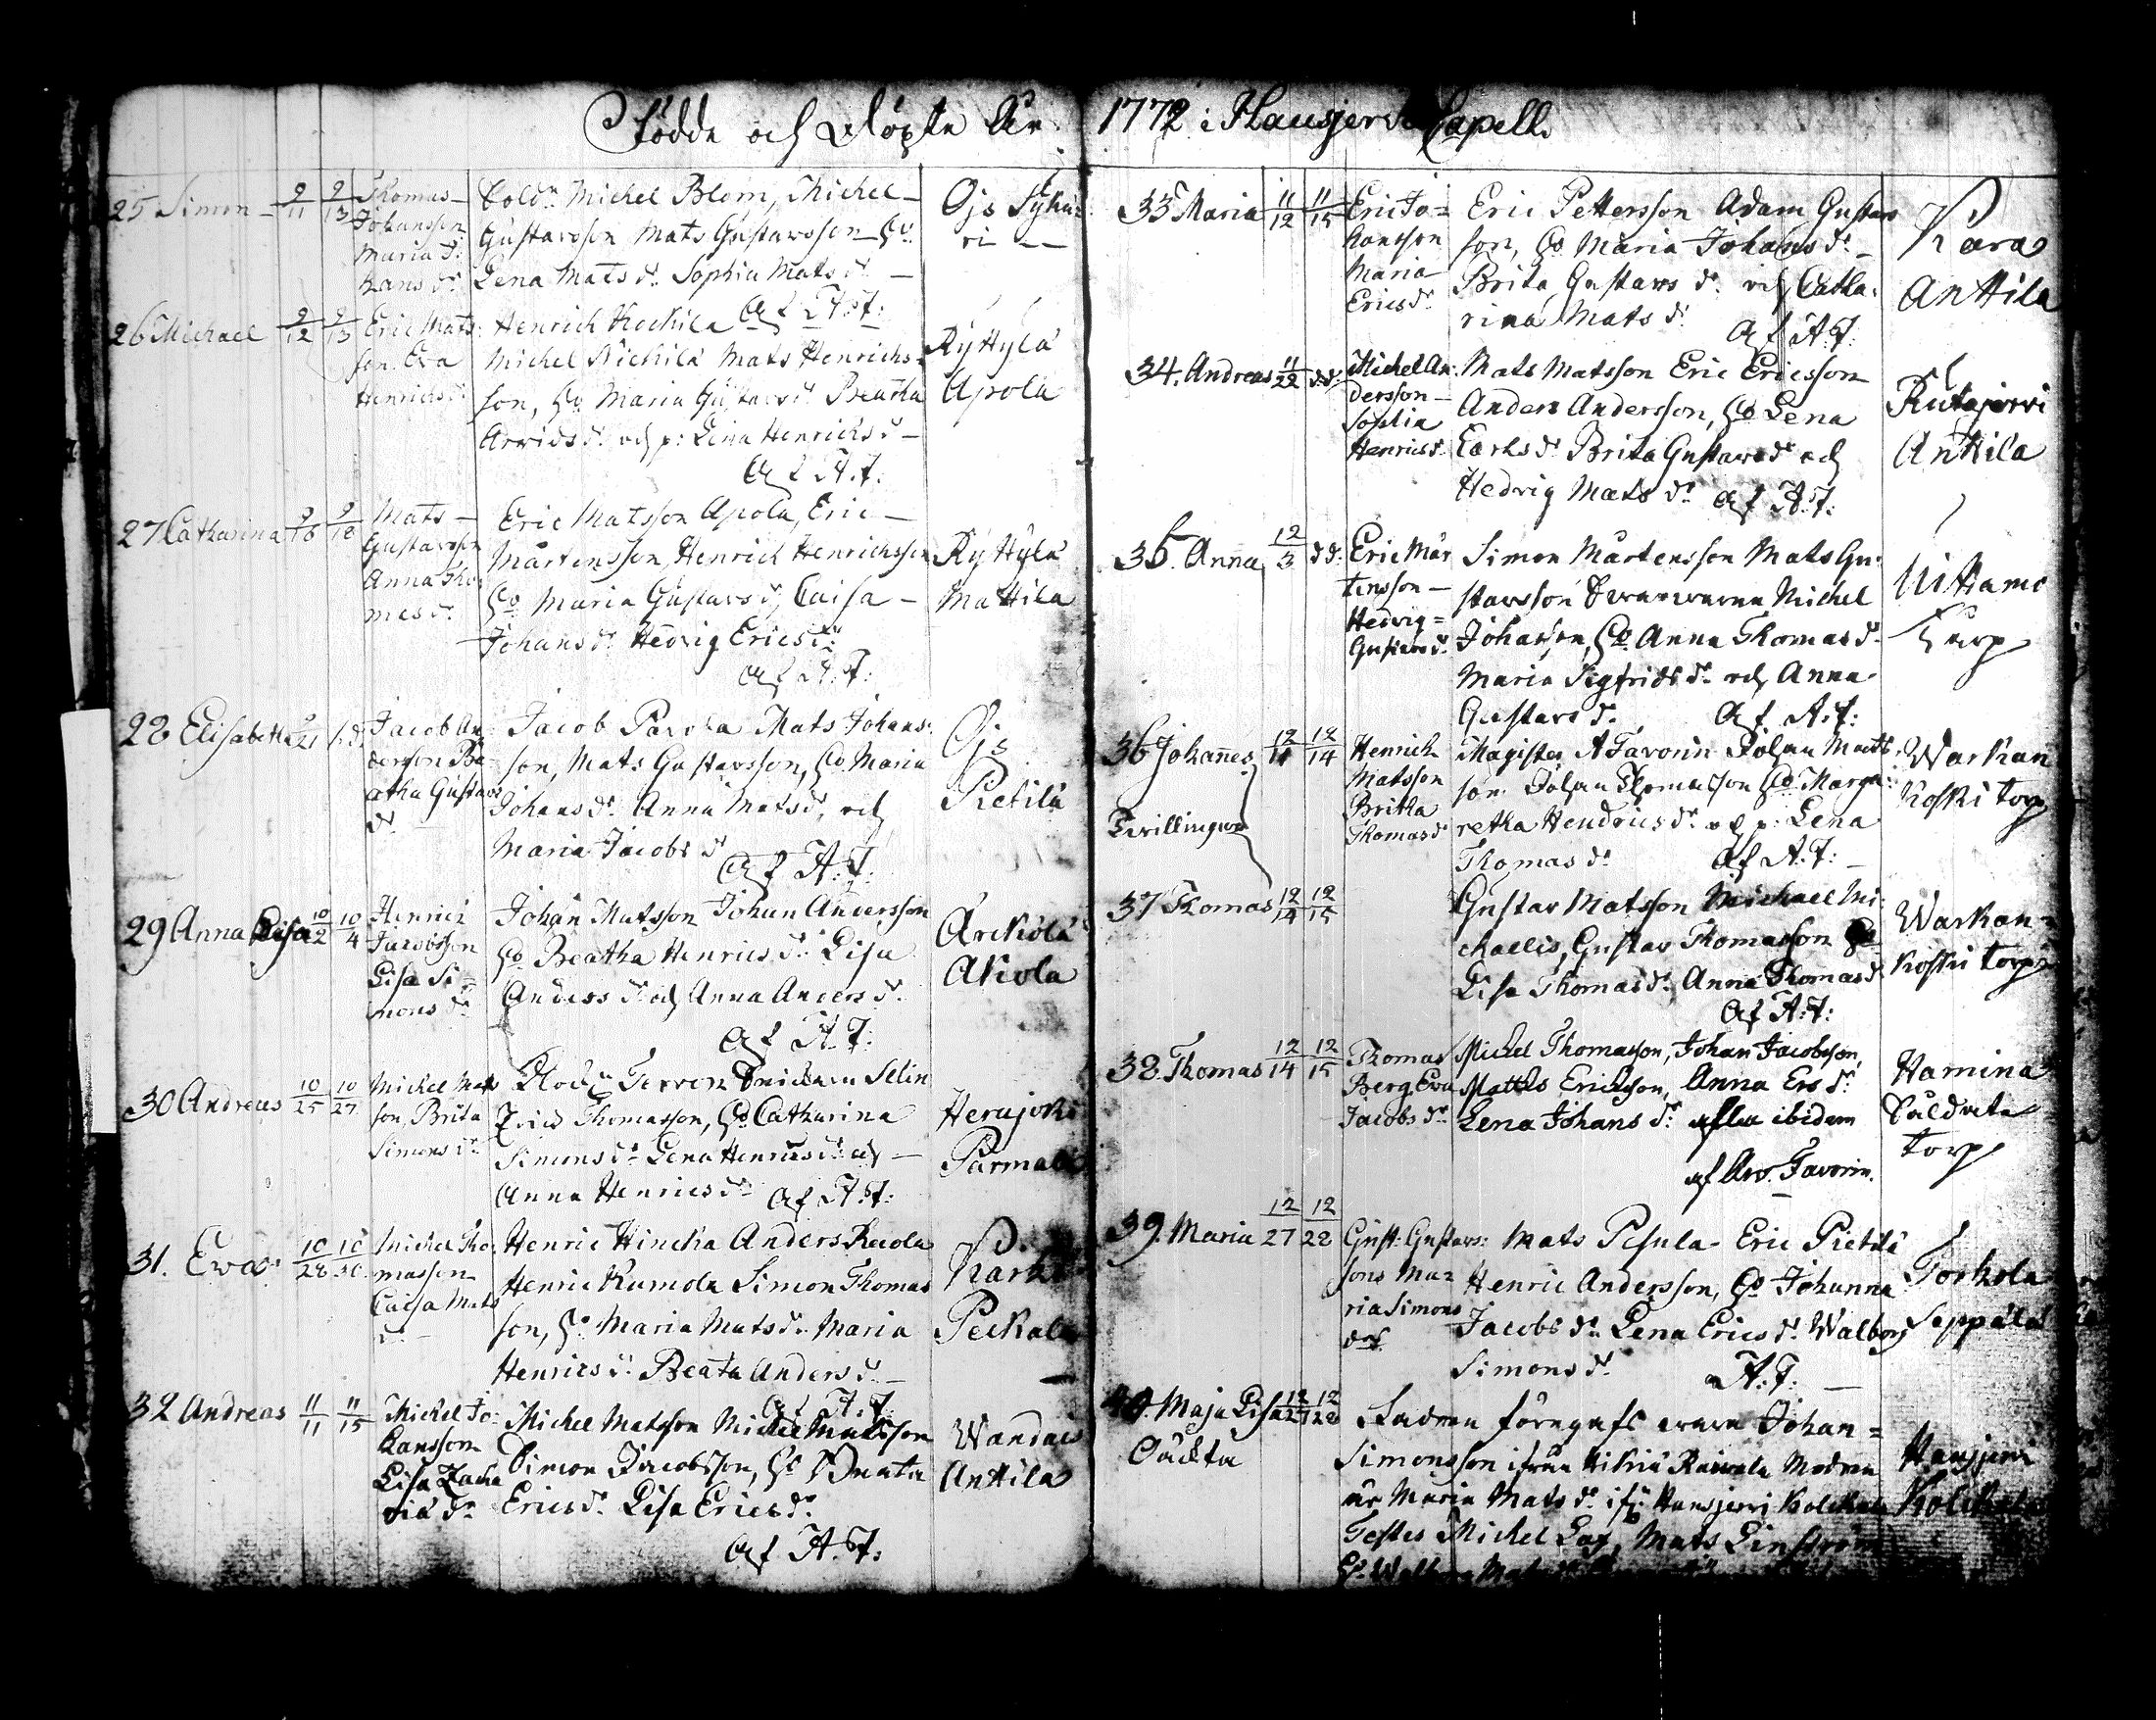 Födde och Döpte År 1772 i Hausjervi Capell.
25 Simon 9/11 9/13 Thomas Johansson Maria Hansdr
Sold. Michel Blom, Michel
Gustavsson Mats Gustavsson Co
Lena Matsdr Sophia Matsdr
Af A:F:
Ojs Syku
ri
26 Michael 9/12 9/13 Eric Matsson Eva Henricsdr
Henrich Kockila
Michel Nickilä Mats Henrichs-
son, Co Maria Gustavsdr Beatha
Arvidsdr och p: Lena Henrichsd
Af A:F:
Ryttylä
Apola
27 Catharina 9/16 9/18 Mats Gustavsson Anna Thomesdr
Eric Matsson Apola, Eric
Mårtensson, Henrich Henrichsson
Co Maria Gustavsdr, Caisa
Johansdr Hedvig Ericsdr
Af A:F:
Ryttylä
Mattila
28 Elisabeth 9/21 Jacob Andersson Beatha Gustavsdr
Jacob Parola Mats Johans-
son, Mats Gustavsson, Co Maria
Johansdr Anna Matsdr, och
Maria Jacobsdr
Af A:F:
Ojs
Pietilä
29 Anna Lisa 10/2 10/4 Henrich Jacobsson Lisa Simonsdr
Johan Matsson Johan Andersson
Co Beatha Henricsdr Lisa
Andersdr och Anna Andersdr
Af A:F:
Arckola
Akola
30 Andreas 10/25 10/27 Michel Matsson, Brita Simonsdr
Thomasson, Co Catharina
Simonsdr Lena Henricsdr och
Anna Henricsdr Af A:F:
Herajoki
Parmala
31. Eva 10/28 10/30 Michel Thomasson Caisa Matsdr
Henric Hincka Anders Recola
Henric Kumola Simon Thomas
son, Co Maria Matsdr Maria
Henricsdr Beata Andersdr
Af A:F:
Karhi
Peckala
32 Andreas 11/11 11/15 Michel Johansson Lisa Zachariædr
Michel Matsson Michel Matsson
Simon Jacobsson, Co Beata
Ericsdr Lisa Ericsdr
Af A:F:
Wandais
Anttila
33 Maria 11/12 11/15 Eric Johansson Maria Ericsdr
Eric Pettersson Adam Gustavs
son, Co Maria Johansdr
Brita Gustavsdr och Catha-
rina Matsdr
Af A:F:
Kara
Anttila
34. Andreas 11/22 d:d: Michel Andersson Sophia Henricsdr
Mats Matsson Eric Ericsson
Anders Andersson, Co Lena
Carlsdr Brita Gustavsdr och
Hedvig Matsdr Af A:F:
Rutajervi
Anttila
35. Anna 12/3 d:d: Eric Mårtensson Hedvig Gustavsdr
Simon Mårtensson Mats Gu-
stavsson Michel
Johansson, Co Anna Thomasdr
Maria Sigfridsdr och Anna
Gustavsdr Af A:F:
Torp
36 Johannes 12/11 12/14 Henrich Matsson Britha Thomasdr
Magister A Favorin Johan Mats
son Johan Thomasson Co Marga-
retha Hendricsdr och p: Lena
Thomasdr Af A:F:
Warkan
koski torp
Tvillingar
37 Thomas 12/14 12/15
Gustav Matsson Michael Mi-
chaelis, Gustav Thomasson Co
Lisa Thomasdr Anna Thomasdr
Af A:F:
Warkan-
koski torp
38. Thomas 12/14 12/15 Thomas Berg Eva Jacobsdr
Michel Thomasson, Johan Jacobsson,
Matths Ericksson, Anna Ersdr
Lena Johansdr alla ibidem
af Arv. Favorin.
Hamina
Soldate
torp
39. Maria 12/27 12/28 Gust: Gustavssons Maria Simonsdotr
Mats Pesula Eric Pietilä
Henric Andersson, Co Johanna
Jacobsdr Lena Ericsdr Walborg
Simonsdr A:F:
Torhola
Seppälä
40. Maja Lisa 12/27 12/28
Oäckta
Fadren föregafs vara Johan
Simonsson ifrån Hikiä Raivala Modren
är Maria Matsdr ifr. Hausjervi Kolckala
Testes Michel Lax, Mats Linström
Hausjervi
Kolckala